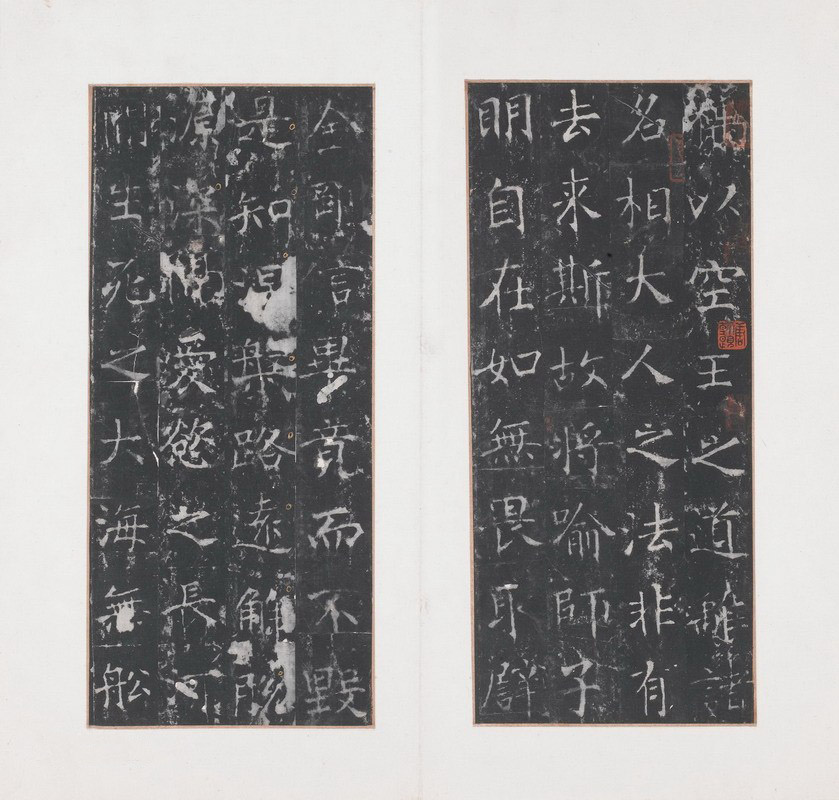 竊以空王之道離諸
名相大人之法非有
去來斯故將喻師子
明自在如無畏取譬
金剛信畢竟而不毀
是知涅槃路遠解脫
源深隔愛慾之長河
間生死之大海無船